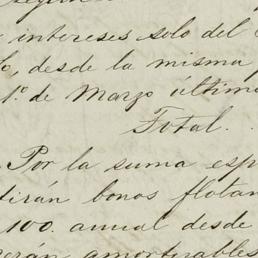 intereses solo del
desde la misma
1º de Marzo último
Total.
Por la suma esp
dirán bonos flotan
100. anual desde
serán amortizables